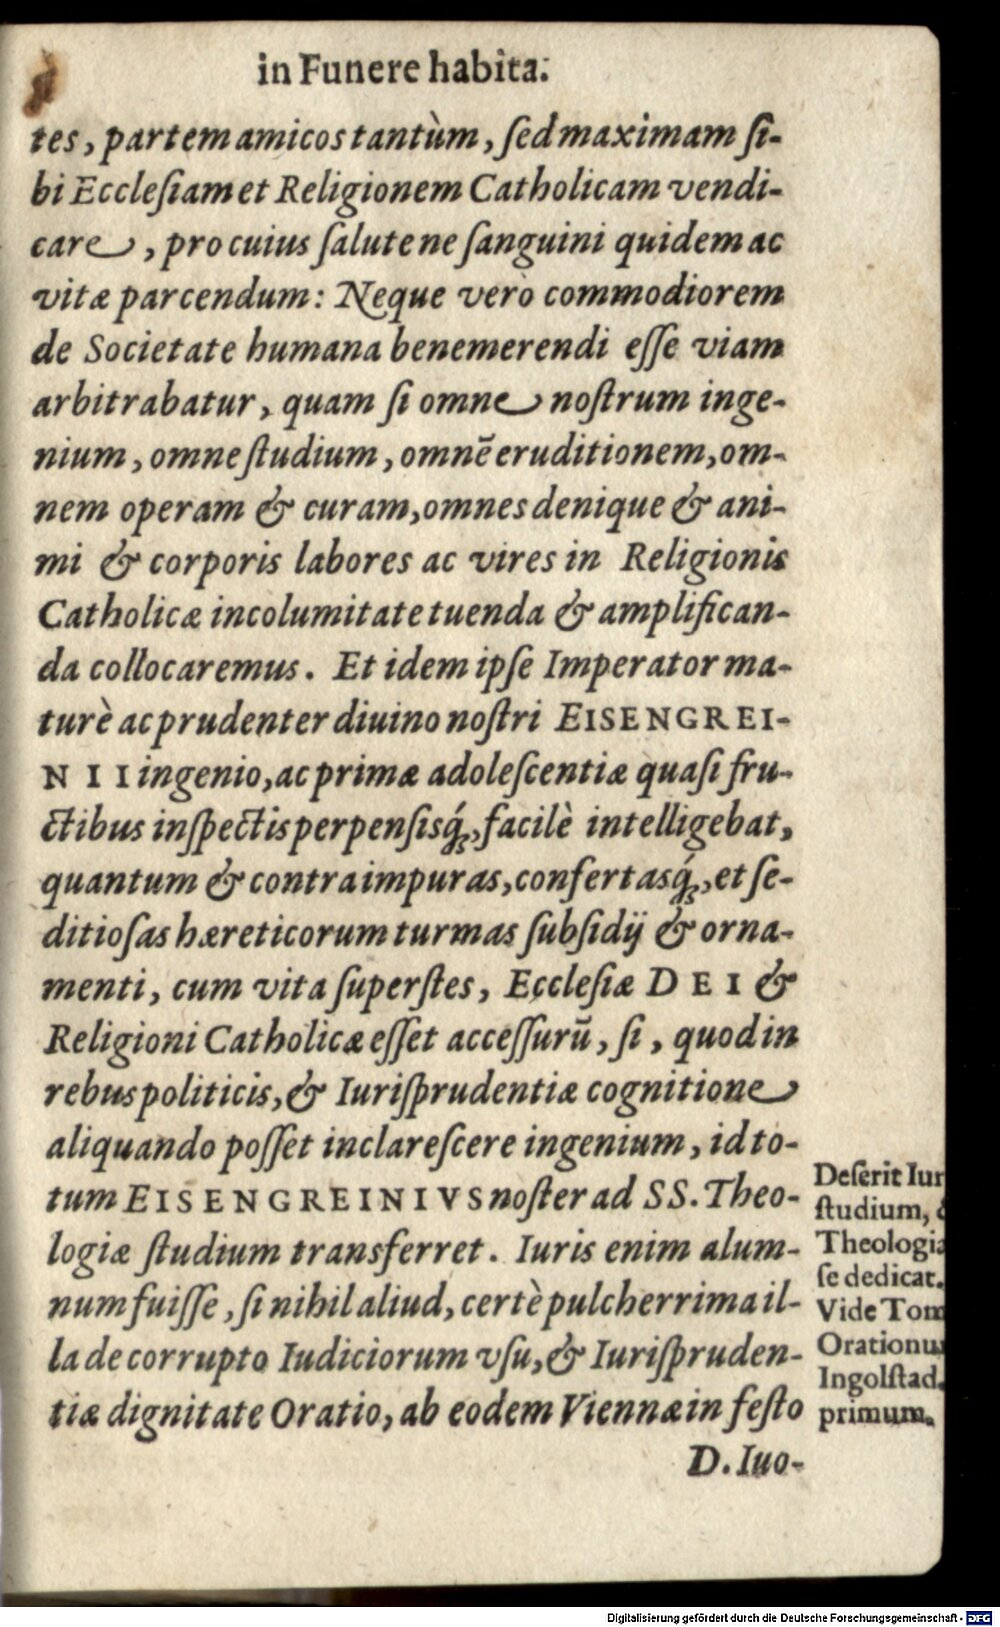 in Funere habita.
tes, partem amicos tantùm, ſed maximam ſi-
bi Eccleſiam et Religionem Catholicam vendi-
care, pro cuius ſalute ne ſanguini quidem ac
vitæ parcendum: Neque vero commodiorem
de Societate humana benemerendi eſſe viam
arbitrabatur, quam ſi omne noſtrum inge-
nium, omne ſtudium, omnē eruditionem, om-
nem operam & curam, omnes denique & ani-
mi & corporis labores ac vires in Religionis
Catholicæ incolumitate tuenda & amplifican-
da collocaremus. Et idem ipſe Imperator ma-
turè ac prudenter diuino noſtri EISENGREI-
NII ingenio, ac primæ adoleſcentiæ quaſi fru-
ctibus inſpectis perpenſisq́;, facilè intelligebat,
quantum & contra impuras, confertasq́;, et ſe-
ditioſas hæreticorum turmas ſubſidij & orna-
menti, cum vita ſuperſtes, Eccleſiæ DEI &
Religioni Catholicæ eſſet acceſſurū, ſi, quod in
rebus politicis, & Iuriſprudentiæ cognitione
aliquando poſſet inclareſcere ingenium, id to-
tum EISENGREINIVS noſter ad SS. Theo-
logiæ ſtudium transferret. Iuris enim alum-
num fuiſſe, ſi nihil aliud, certè pulcherrima il-
la de corrupto Iudiciorum vſu, & Iuriſpruden-
tiæ dignitate Oratio, ab eodem Viennæ in feſto
D. Iuo-
Deſerit Iur
ſtudium, &
Theologiæ
ſe dedicat.
Vide Tom
Orationu
Ingolſtad.
primum.
Digitalisierung gefördert durch die Deutsche Forschungsgemeinschaft - DFG